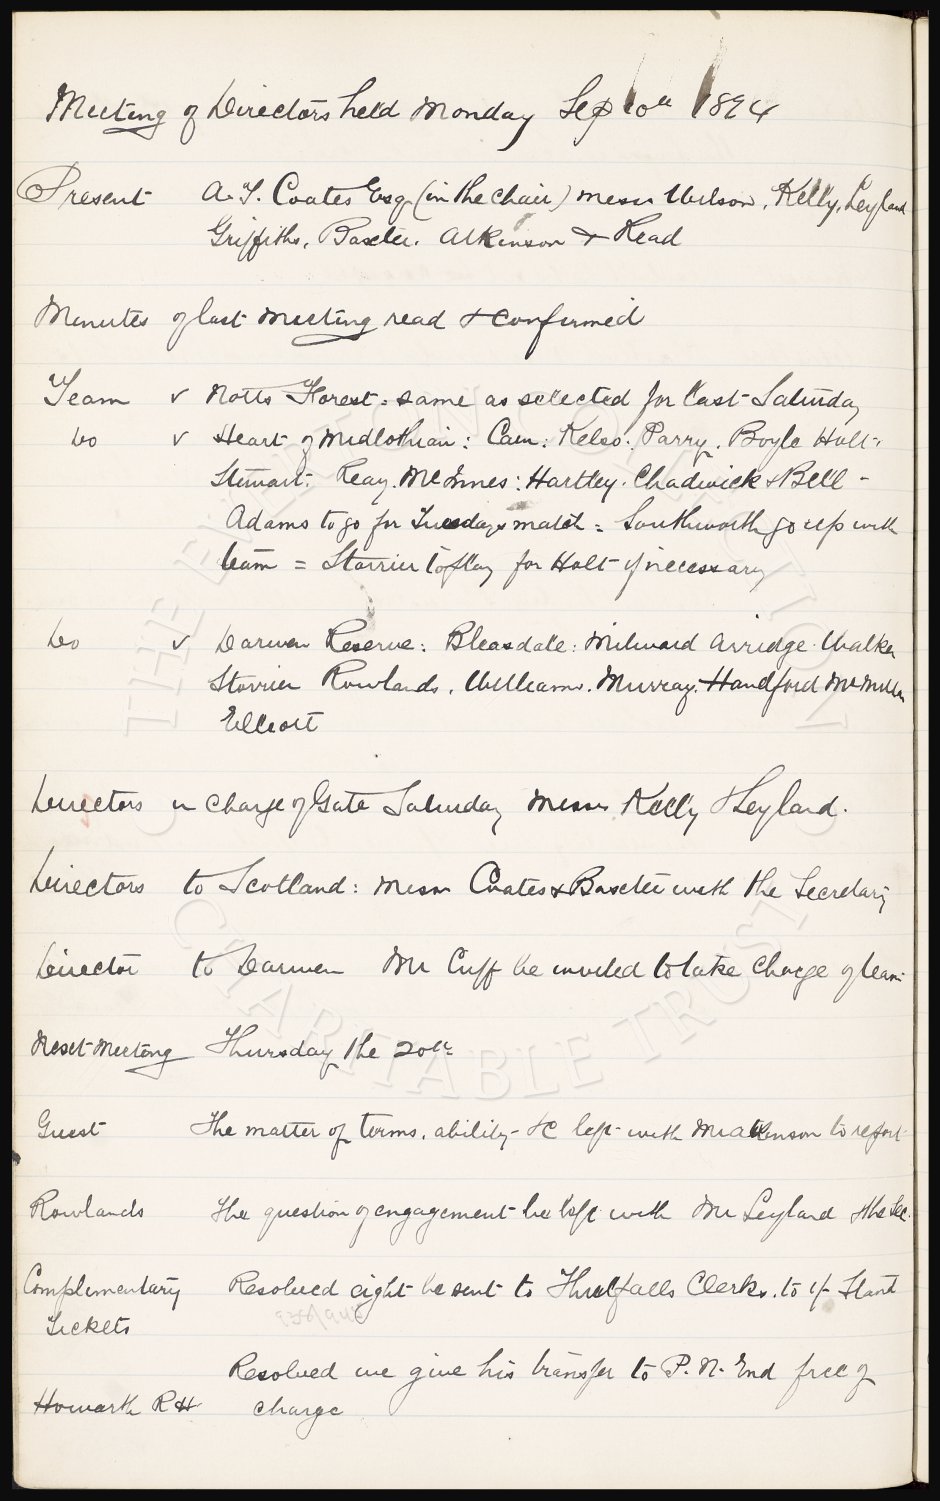 Meeting of Directors held Monday Sep 10th 1894
Present A. T. Coates Esq (in the chair) Messrs Wilson, Kelly, Leyland
Griffiths, Baxter, Atkinson & Read
Minutes of last meeting read & confirmed
Team v Notts Forest = same as selected for last Saturday
Do v Heart of Midlothian: Cain: Kelso. Parry. Boyle Holt.
Stewart; Reay. McInnes: Hartley. Chadwick & Bell -
Adams to go for Tuesdays match = Southworth go up with
team = Storrier to play for Holt if necessary
Do v Darwen Reserve: Bleasdale: Milward Arridge Walker
Storrier Rowlands. Williams. Murray. Handford McMillan
Elliott
Directors in charge of Gate Saturday Messrs Kelly & Leyland.
Directors to Scotland: Messrs Coates & Baxter with the Secretary
Director to Darwen Mr Cuff be invited to take charge of team
Next Meeting Thursday the 20th
Guest The matter of terms, ability &c left with Mr Atkinson to report
Rowlands The question of engagement be left with Mr Leyland & the Sec.
Complimentary Resolved eight be sent to Threlfalls Clerks. to 1/- Stand
Tickets
Resolved we give his transfer to P. N. End free of
Howarth R H charge
THE EVERTON COLLECTION
CHARITABLE TRUST